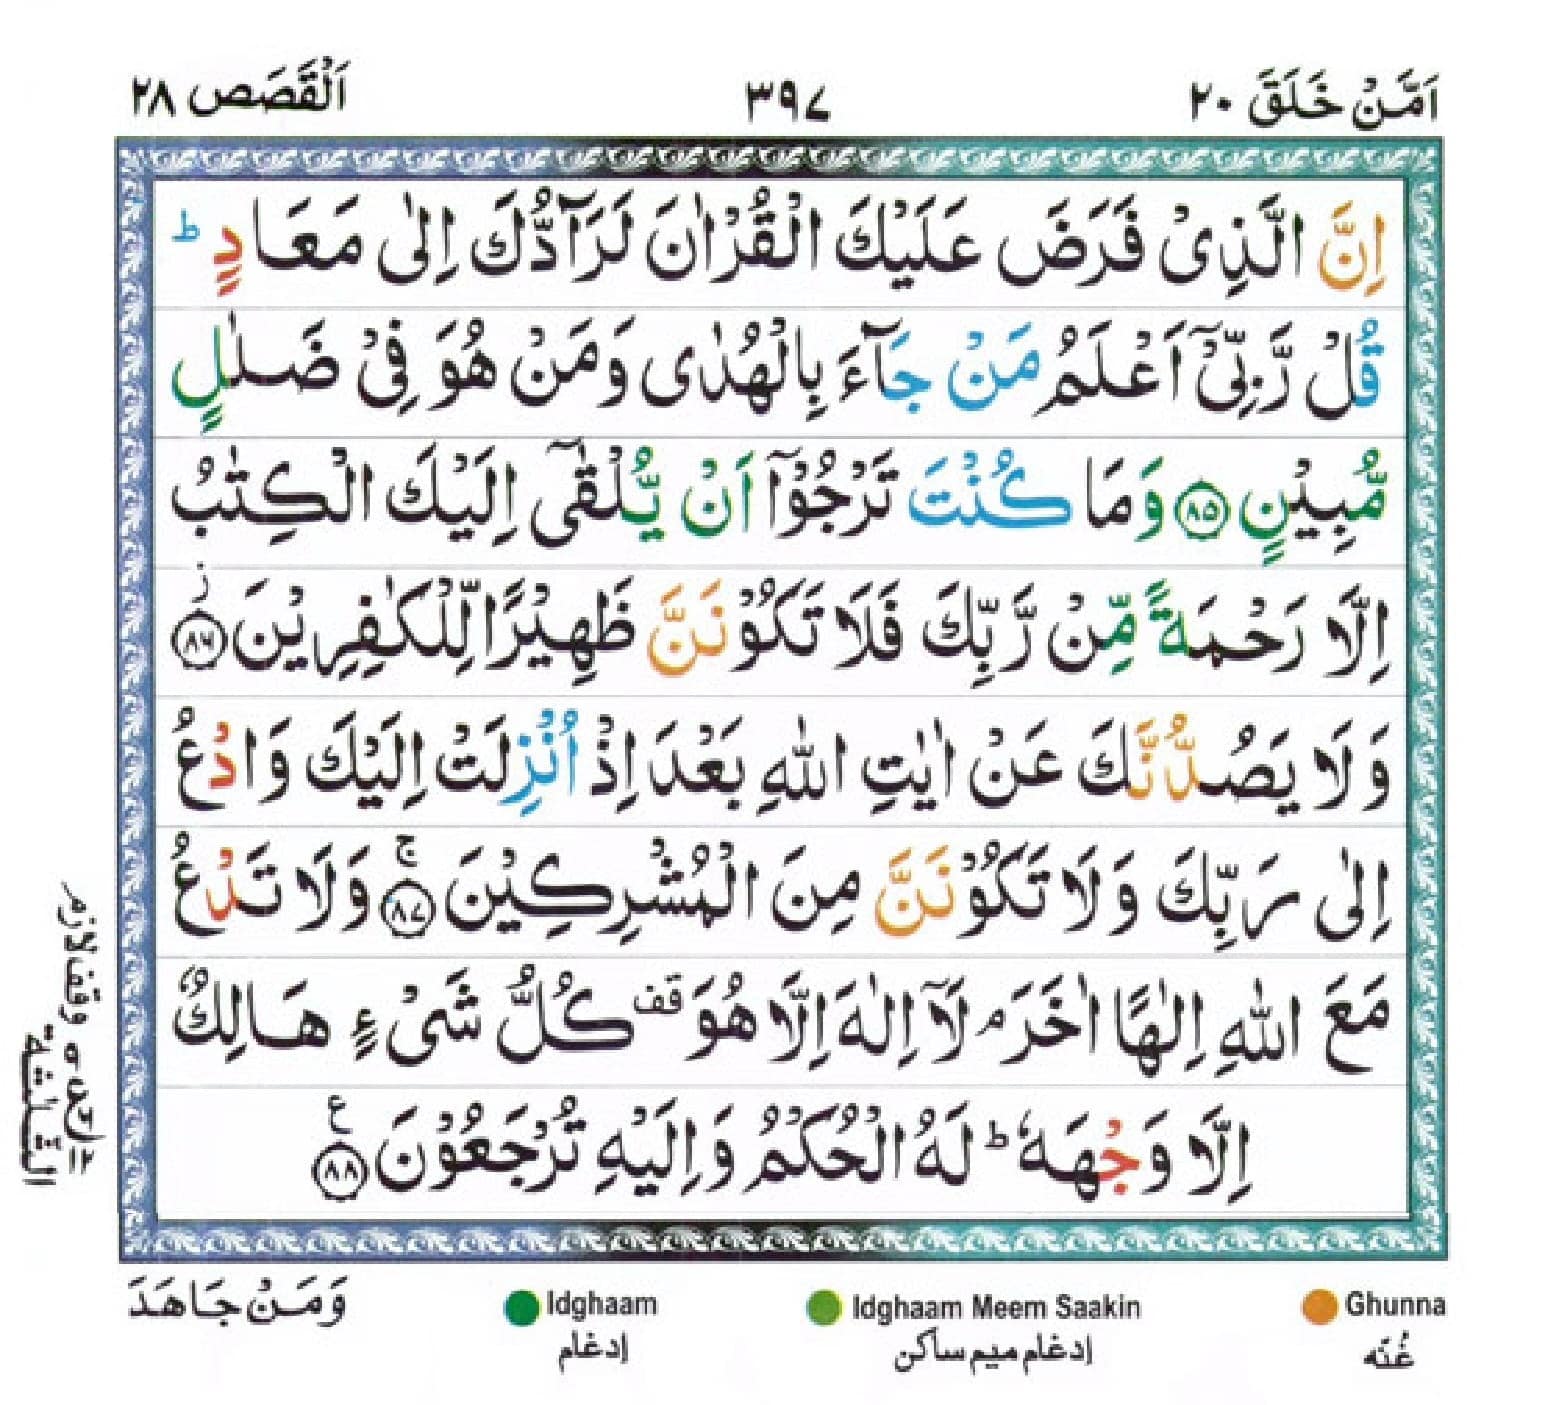 اَمَّنْ خَلَقَ ٢٠
٣٩٧
اَلْقَصَص ٢٨
اِنَّ الَّذِیْ فَرَضَ عَلَیْكَ الْقُرْاٰنَ لَرَآدُّكَ اِلٰی مَعَادٍ ؕ
قُلْ رَّبِّیْۤ اَعْلَمُ مَنْ جَآءَ بِالْهُدٰی وَمَنْ هُوَ فِیْ ضَلٰلٍ
مُّبِیْنٍ ﴿٨٥﴾ وَمَا كُنْتَ تَرْجُوْۤا اَنْ یُّلْقٰۤی اِلَیْكَ الْكِتٰبُ
اِلَّا رَحْمَةً مِّنْ رَّبِّكَ فَلَا تَكُوْنَنَّ ظَهِیْرًا لِّلْكٰفِرِیْنَ ز ﴿٨٦﴾
وَلَا یَصُدُّنَّكَ عَنْ اٰیٰتِ اللّٰهِ بَعْدَ اِذْ اُنْزِلَتْ اِلَیْكَ وَادْعُ
اِلٰی رَبِّكَ وَلَا تَكُوْنَنَّ مِنَ الْمُشْرِكِیْنَ ۚ ﴿٨٧﴾ وَلَا تَدْعُ
مَعَ اللّٰهِ اِلٰهًا اٰخَرَ ۘ لَاۤ اِلٰهَ اِلَّا هُوَ قف كُلُّ شَیْءٍ هَالِكٌ
اِلَّا وَجْهَهٗ ؕ لَهُ الْحُكْمُ وَاِلَیْهِ تُرْجَعُوْنَ ع ﴿٨٨﴾
وقف لازم
الثلثة
Ghunna
غُنّه
Idghaam Meem Saakin
إدغام میم ساکن
Idghaam
إدغام
وَمَنْ جَاهَدَ